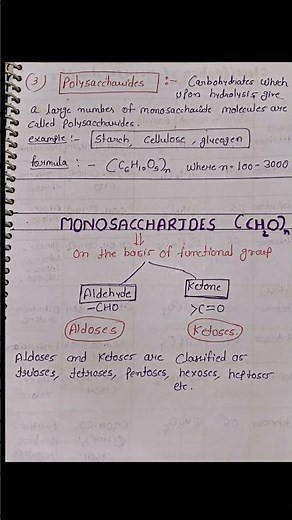 (3) Polysaccharides :- Carbohydrates which
upon hydrolysis give
a large number of monosaccharide molecules are
called Polysaccharides.
example:- Starch, cellulose, glycogen
formula :- (C6H10O5)n where n=100-3000
MONOSACCHARIDES (CH2O)n
⇓
On the basis of functional group
Aldehyde Ketone
-CHO >C=O
Aldoses Ketoses
Aldoses and Ketoses are Classified as
trioses, tetroses, pentoses, hexoses, heptoses
etc.